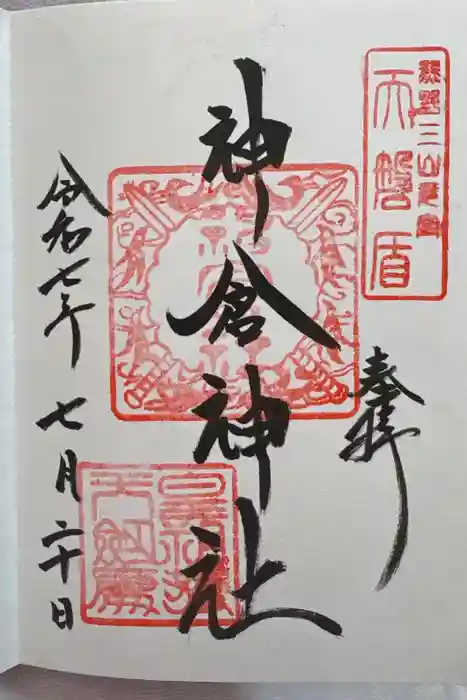 奉拝
熊野三山元宮
天磐盾
神倉神社
令和七年
七月二十日